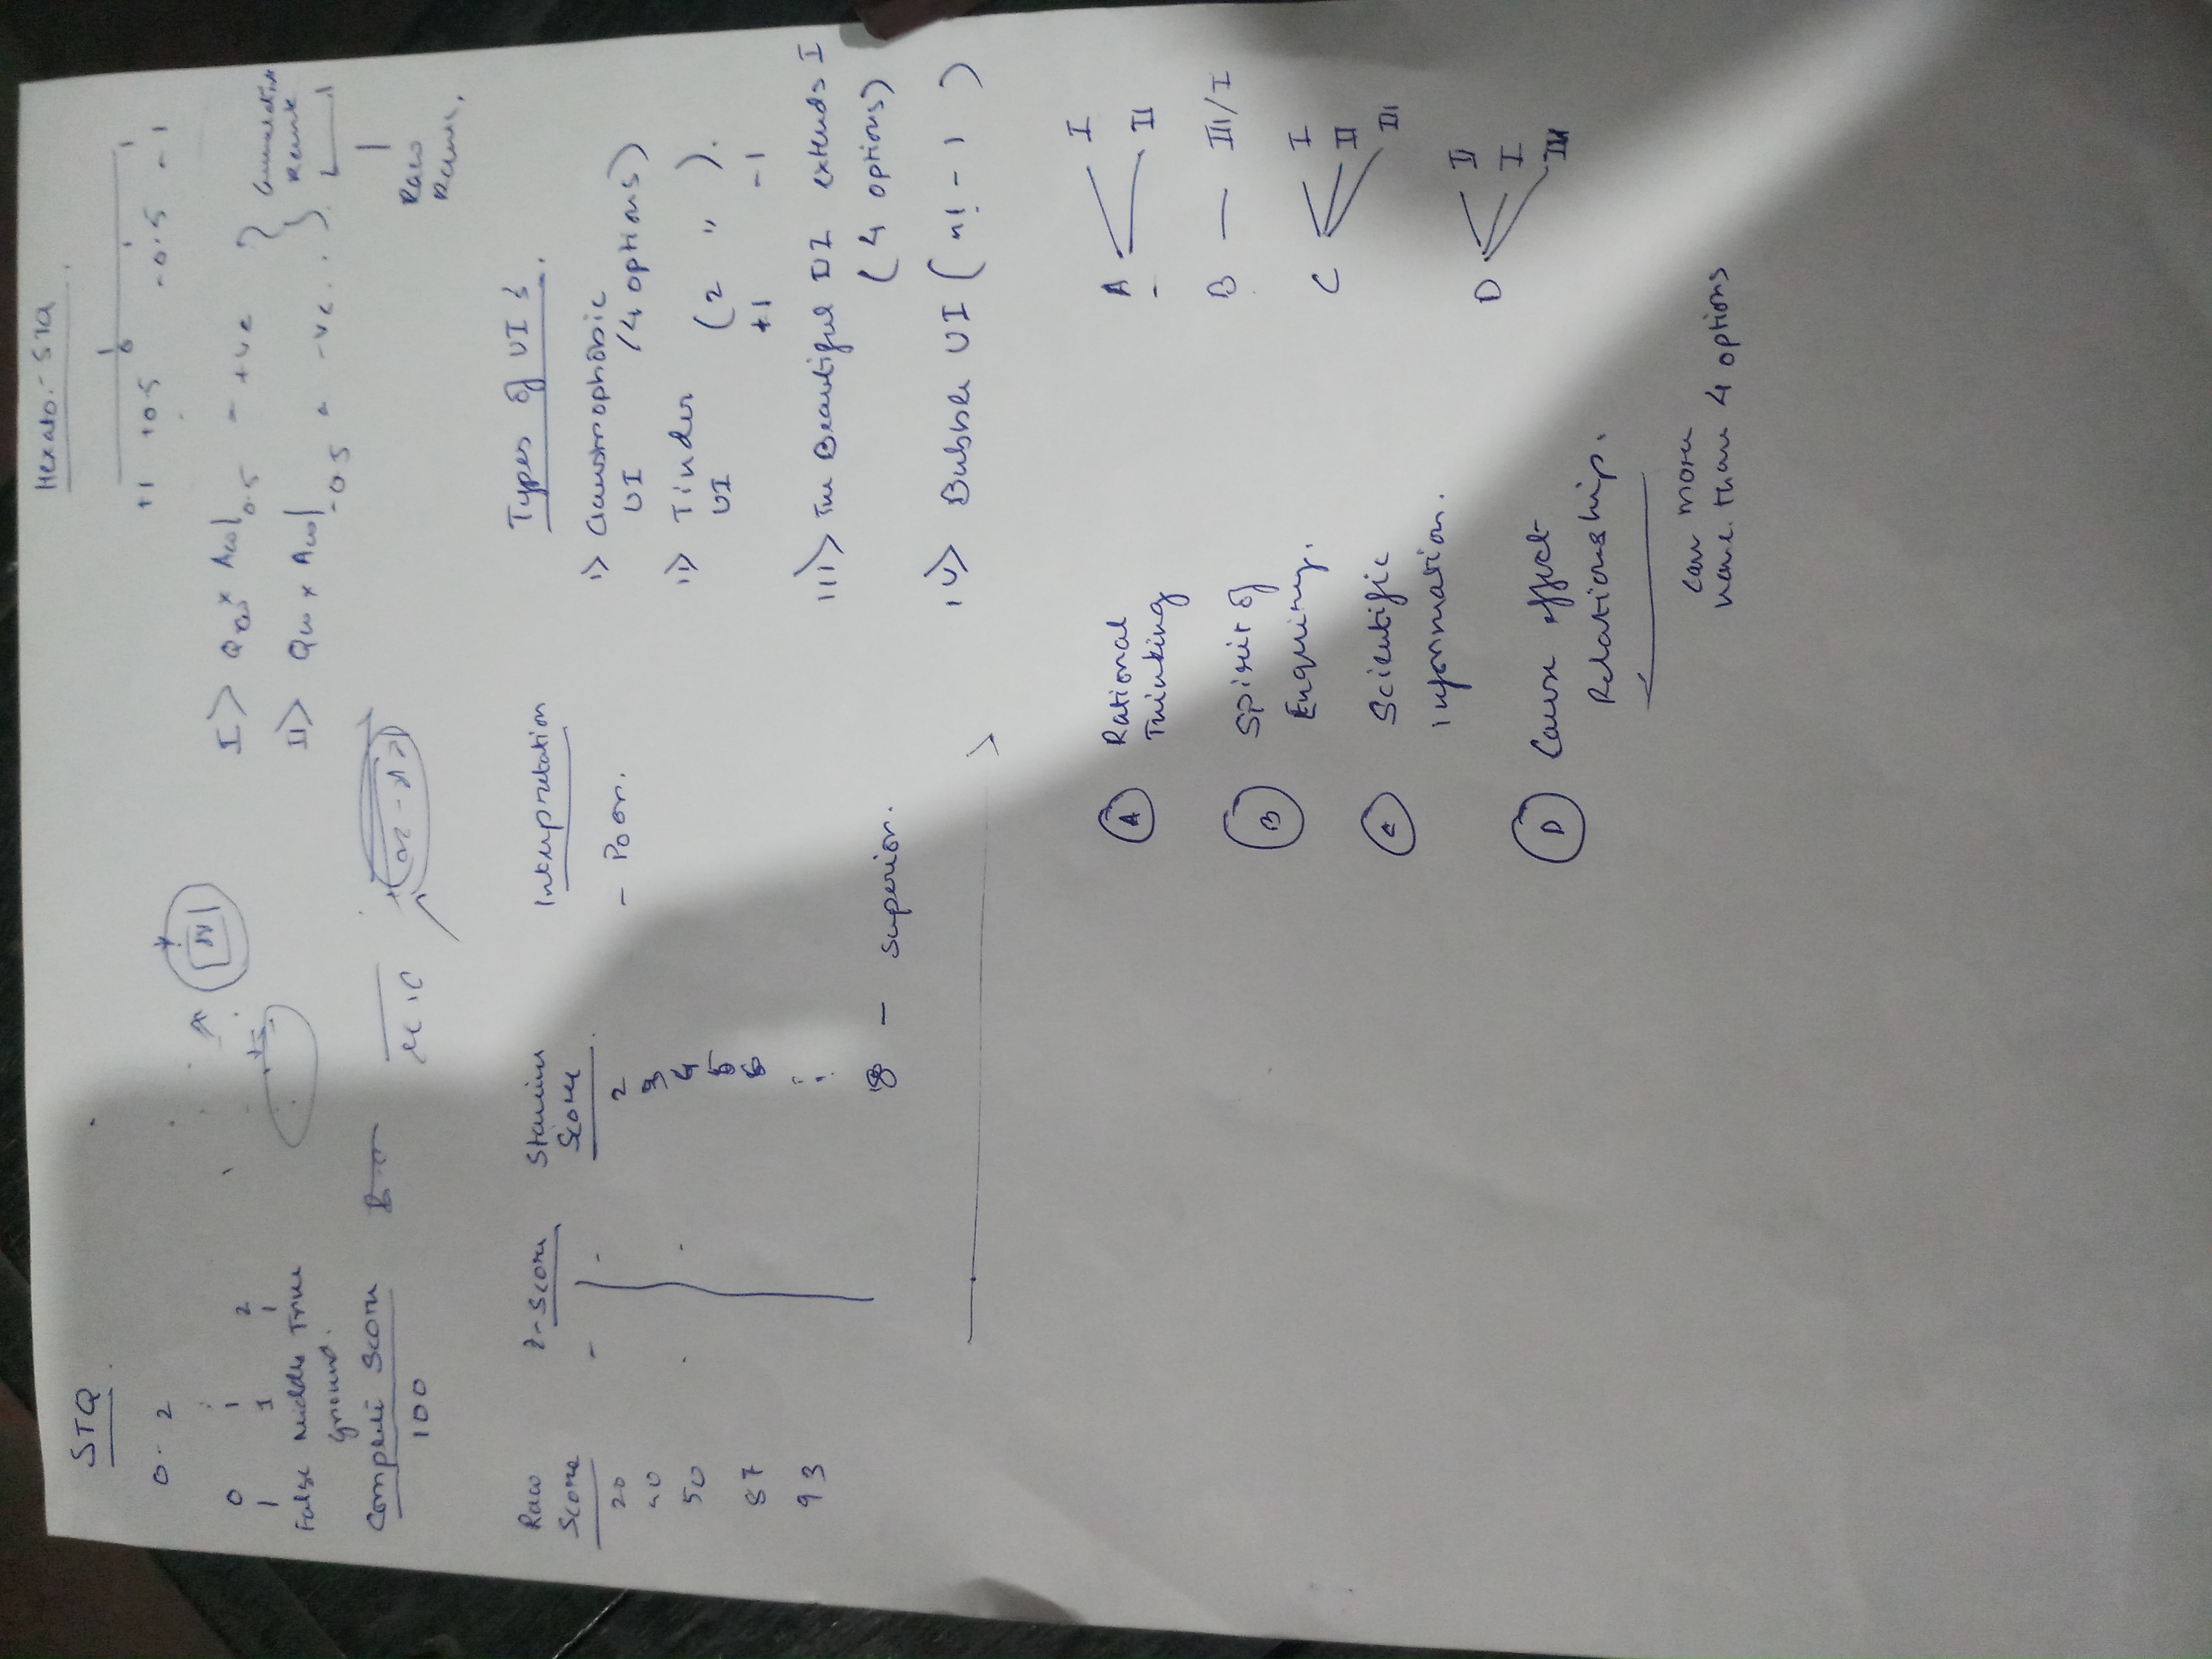 STQ
0 - 2
0 1 2
False Middle True
ground.
Complete Score
100
Hexato.- STQ
+1 +0.5 0 -0.5 -1
I> Qw x Aw|0.5 = +ve
II> Qw x Aw|-0.5 = -ve
Cumulative
Raw
Raw Z-Score Stanine Interpretation
Score Score
20 2 - Poor.
40 3
50 4
5
87 6
93
8 - Superior.
Types of UI's
i> Claustrophobic
UI (4 options)
ii> Tinder
UI (2 " ).
+1 -1
iii> The Beautiful UI extends I
(4 options)
iv> Bubble UI (n! - 1 )
A Rational
Thinking
B Spirit of
Enquiry.
C Scientific
Information.
D Cause effect
Relationship.
can more
have than 4 options
A I
II
B — III/I
C I
II
III
D II
I
III